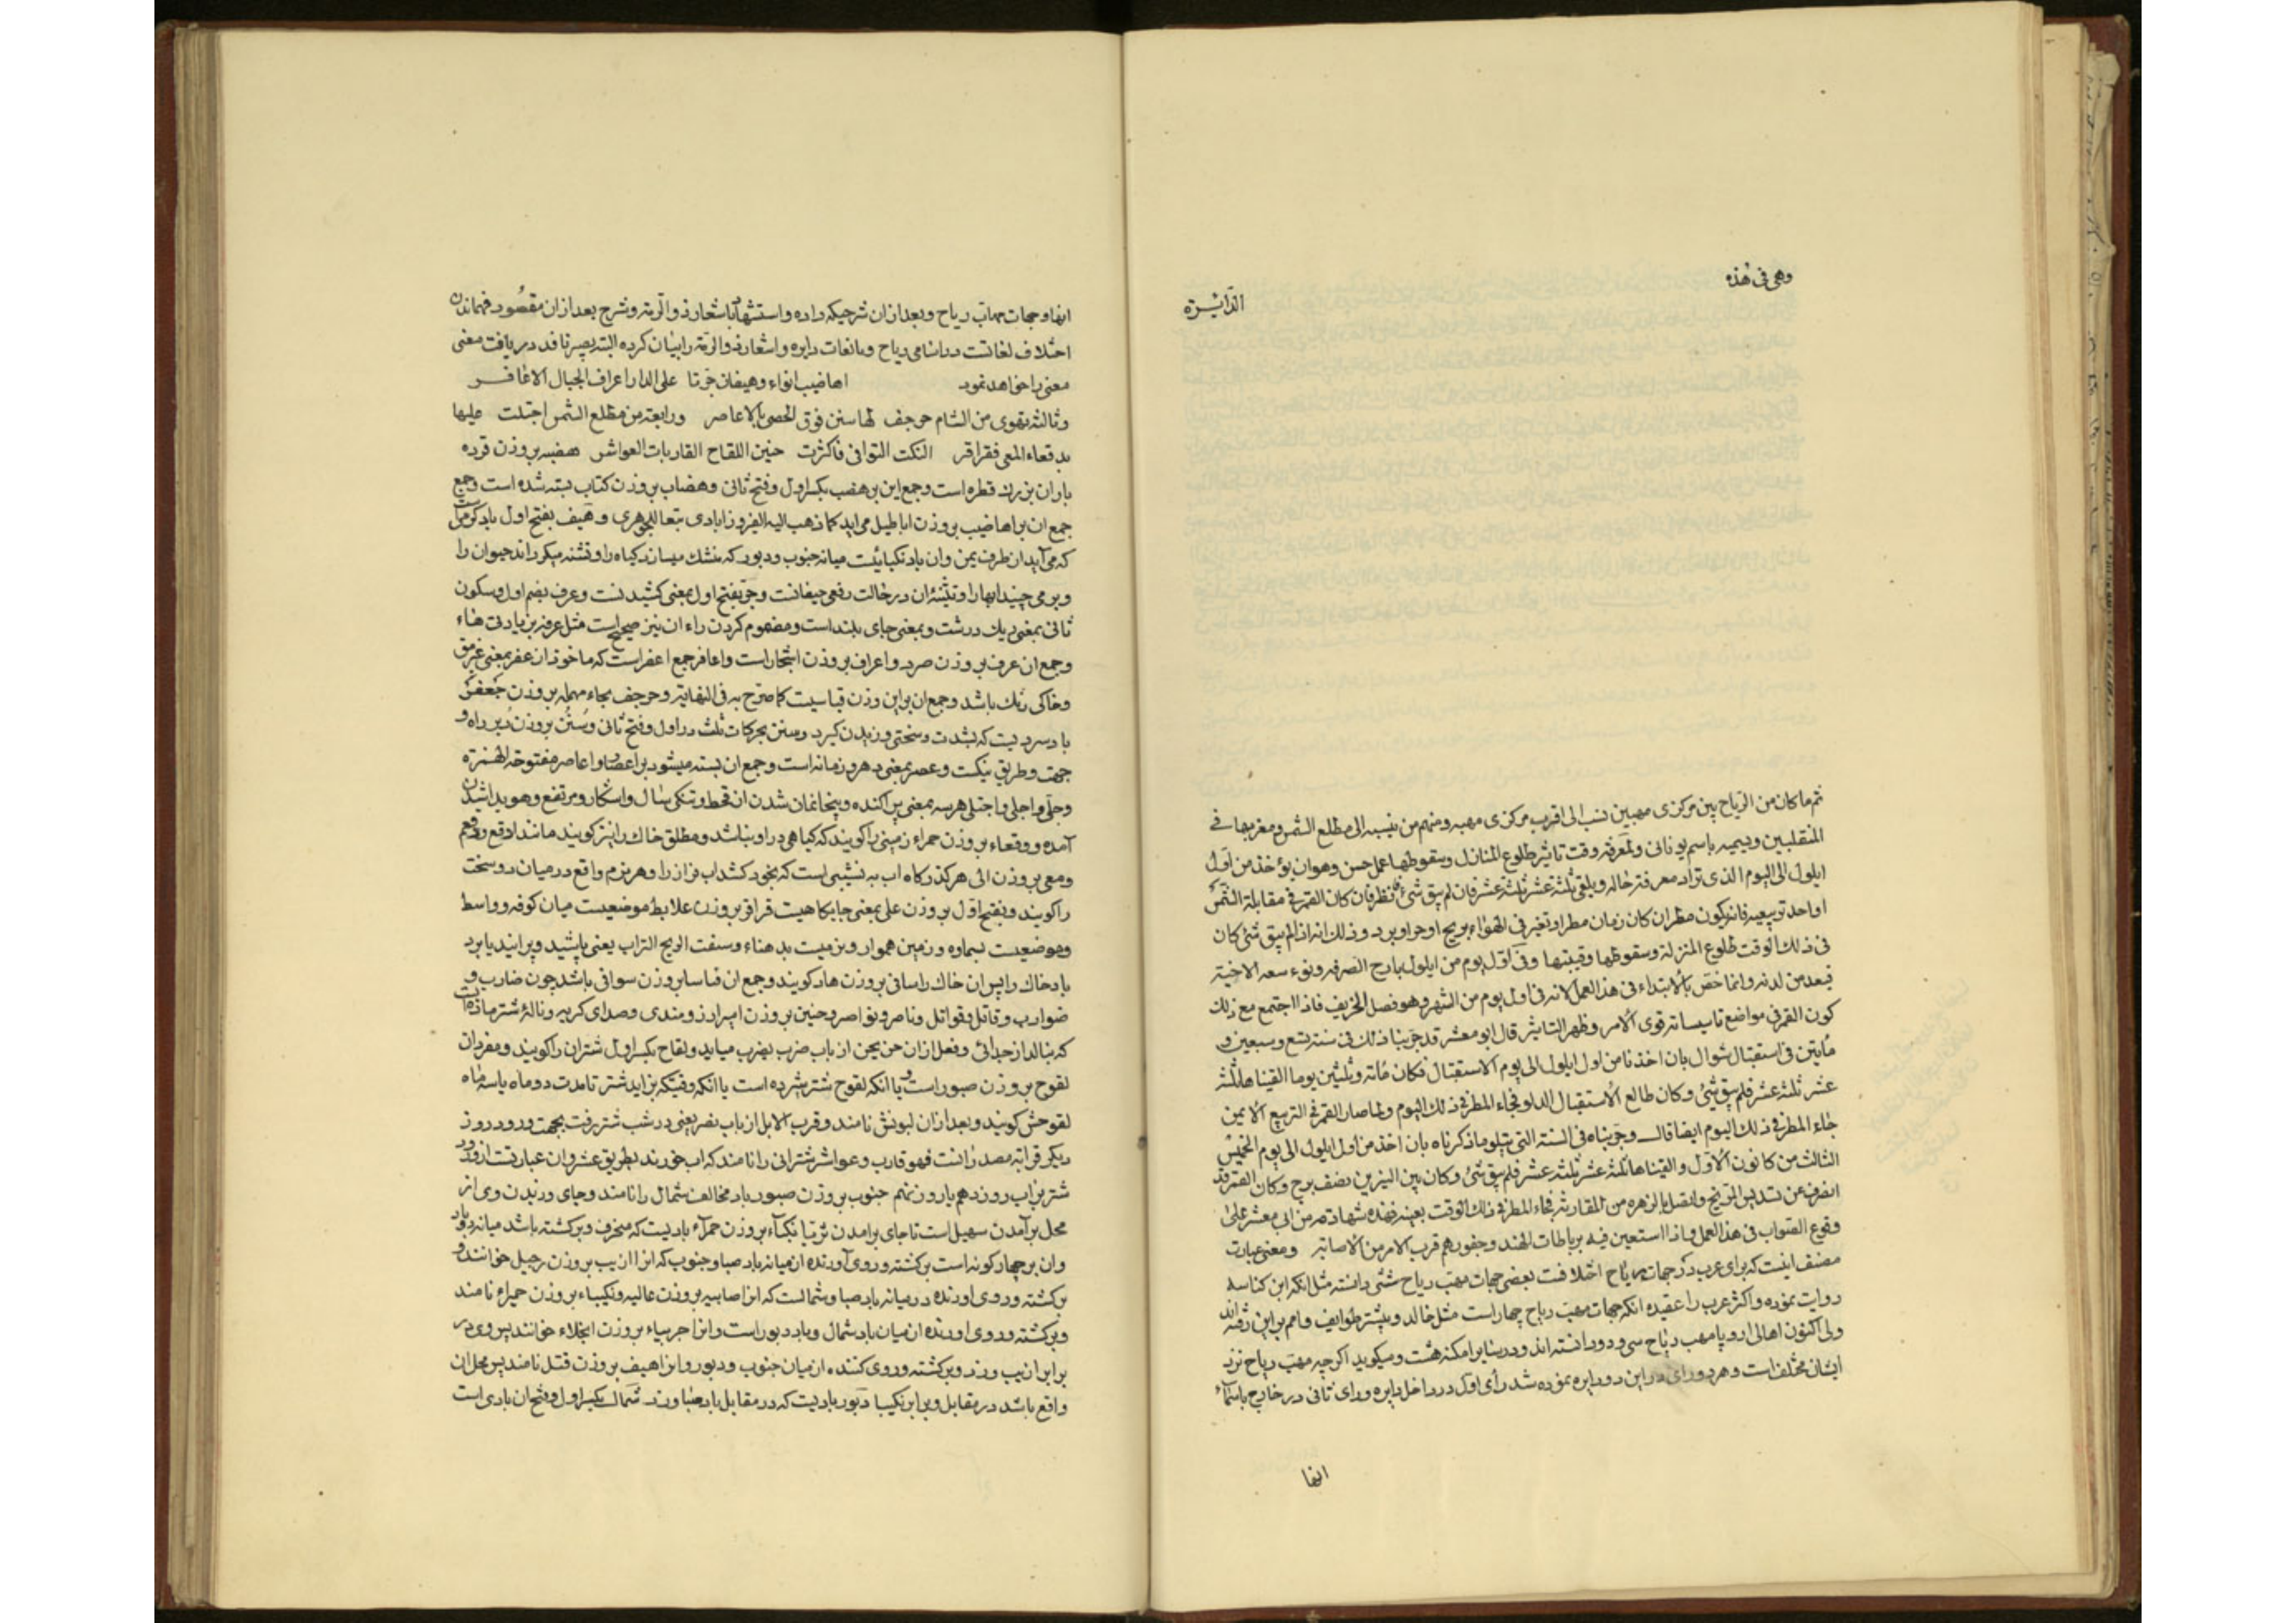 وهی فی هذه
الدائرة
ثم ما كان من الرياح بين مركزی مهبين نسب الى اقرب مركزی مهبه ومنهم من ينسبه الى مطلع الشمس ومغربها فی
المنقلبين ويسميه باسم يونانی ولمعرفة وقت تاثير طلوع المنازل وسقوطها عمل حسن وهو ان يؤخذ من اول
ايلول الى اليوم الذی تراد معرفة حاله ويلقى ثلثة عشر ثلثة عشر فان لم يبق شئ نظر فان كان القمر فی مقابلة الشمس
او احد تربيعيه فانه يكون مطر ان كان زمان مطر او تغير فی الهواء بريح او حر او برد وذلك انه اذا لم يبق شئ كان
فی ذلك الوقت طلوع المنزلة وسقوطها وفی اول يوم من ايلول بارح الصرفة ونوء سعد الاخبية
فيعد من لدنه وانما خص بالابتداء فی هذا العمل لانه فی اول يوم من الشهر وهو فصل الخريف فاذا اجتمع مع ذلك
كون القمر فی مواضع تاسيساته قوى الامر وظهر التاثير قال ابو معشر قد جربنا ذلك فی سنة تسع وسبعين و
مأيتين فی استقبال شوال بان اخذنا من اول ايلول الى يوم الاستقبال فكان مائة وثلثين يوما القيناها ثلثة
عشر ثلثة عشر فلم يبق شئ وكان طالع الاستقبال الدلو فجاء المطر فی ذلك اليوم ولما صار القمر فی التربيع الايمن
جاء المطر فی ذلك اليوم ايضا قال وجربناه فی السنة التی تتلو ما ذكرناه بان اخذ من اول ايلول الى يوم الخميس
الثالث من كانون الاول والقيناها ثلثة عشر ثلثة عشر فلم يبق شئ وكان بين النيرين نصف برج وكان القمر قد
انصرف عن تسديس المريخ واتصل بالزهره من المقارنة فجاء المطر فی ذلك الوقت بعينه فهذه شهادة من ابی معشر على
وقوع الصواب فی هذا العمل فاذا استعين فيه برباطات الهند وجفورهم قرب الامر من الاصابة ومعنی عبارت
مصنف اينست كه برای عرب در جهات رياح اختلافست بعضی جهات مهب رياح شش دانسته مثل انكه ابن كناسه
روايت نموده واكثر عرب را عقيده انكه جهات مهب رياح چهار است مثل خالد وبيشتر طوايف وامم بر اين رفته‌اند
ولی اكنون اهالی اروپا مهب رياح سی ودو دانسته اند ودر بنابر امكنه هشت وميگويد اگرچه مهب رياح نزد
ايشان مختلف است وهر دو رای در اين دو دايره نموده شد رأی اول در داخل دايره ورای ثانی در خارج باسماء
انها
انها وجهات مهاب رياح وبعد از ان شرحيكه داده واستشهاد باشعار ذو الرمة وشرح بعد از ان مقصود فهماندن
اختلاف لغاتست در اسامی رياح وبانعات دايره واشعار ذو الرمة را بيان كرده البته بصير ناقد دريافت معنی
معنی را خواهد نمود اهاضيب انواء وهيفان جرتا على الدار اعراف الجبال الاعافر
وثالثة تهوى من الشام حرجف لها سنن فوق الحصى بالاعاصر ورابعة من مطلع الشمس اجتلت عليها
بدقعاء المعى فقراقر النكت السوافی فاكثرت حنين اللقاح القاربات العواشر هضبه بر وزن قرده
باران بزرك قطره است وجمع اين بر هضب بكسر اول وفتح ثانی وهضاب بر وزن كتاب بسته شده است وجمع
جمع ان بر اهاضيب بر وزن اباطيل می ايد كما ذهب اليه الفيروزابادی تبعا للجوهری وهيف بفتح اول باد گرم است
كه می آيد از طرف يمن وان باد نكبائيست ميانه جنوب ودبور كه خشك ميسازد گياه را وتشنه ميگرداند حيوان را
وبر می چيند ابها را وتثنيه ان در حالت رفعی هيفانست وجر بفتح اول بمعنی كشيدنست وعرف بضم اول وسكون
ثانی بمعنی ريك درشت وبمعنی جای بلند است ومضموم كردن راء ان نيز صحيح است مثل عرفه بزيادتی هاء
وجمع ان عرف بر وزن صرد واعراف بر وزن اشجار است واعافر جمع اعفر است كه ماخوذ از عفر بمعنی
وخاكی رنك باشد وجمع ان بر اين وزن قياسيست كما صرح به فی النهاية وحرجف بحاء مهمله بر وزن جعفر
باد سرديست كه بشدت وسختی وزيدن گيرد وسنن بحركات ثلث در اول وفتح ثانی وسنن بر وزن دبر راه و
جهت وطريق نيكست وعصر بمعنی دهر وزمانه است وجمع ان بسته ميشود بر اعصار واعاصر مفتوحة الهمزة
وجلى واجلى واجتلى هر سه بمعنی پراكنده وبيخانمان شدن از قحط وتنگی سال واشكار ومرتفع وهويدا شدن
آمده ودقعاء بر وزن حمراء زمينی را گويند كه گياهی در او نباشد ومطلق خاك را نيز گويند مانند ادقع
ومعى بر وزن الى هر گذرگاه اب به نشيبی است كه بخود كشد اب فراز را وهر نرم واقع در ميان دو سخت
را گويند وبفتح اول بر وزن على بمعنی جايگاهيست قراقر بر وزن علابط موضعيست ميان كوفه وواسط
وموضعيست بسماوه وزمين هموار وزميست بدهناء وسفت الريح التراب يعنی پاشيد وپرانيد يا برد
باد خاك را پس ان خاك را سافی بر وزن هاد گويند وجمع ان قياسا بر وزن سوافی باشد چون ضارب و
ضوارب وقاتل وقواتل وناصر ونواصر وحنين بر وزن امير ارزومندی وصدای گريه ونالهٔ شتر ماده است
كه بنالد از جدائی وفعل از ان حن يحن از باب ضرب يضرب ميايد ولقاح بكسر اول شتران را گويند ومفرد ان
لقوح بر وزن صبور است ويا انكه لقوح شتر شيرده است يا انكه وقتيكه بزايد شتر تا مدت دو ماه يا سه ماه
لقوحش گويند وبعد از ان لبونش نامند وقرب الابل از باب نصر يعنی در شب شتر رفت بجهت ورود روز
ديگر قرابه مصدر انست فهو قارب وعواشر شترانی را نامند كه اب خورند بطريق عشر وان عبارتست از ورود
شتر بر اب روز دهم يا روز نهم جنوب بر وزن صبور باد مخالف شمال را نامند وجای وزيدن وی از
محل بر آمدن سهيل است تا جای بر امدن ثريا نكباء بر وزن حمراء باديست كه منحرف وبرگشته باشد ميانه دو باد
وان بر چهار گونه است برگشته وروی آورنده از ميانه باد صبا وجنوب كه انرا ازيب بر وزن خوانند و
برگشته وروی اورنده در ميانه باد صبا وشمالست كه انرا صابيه بر وزن عاليه ونكيباء بر وزن حميراء نامند
وبرگشته وروی اورنده از ميان باد شمال وباد دبور است وانرا جربياء بر وزن خوانند پس وی در
برابر ازيب وزد وبرگشته وروی كننده از ميان جنوب ودبور وانرا هيف بر وزن قتل نامند پس محل ان
واقع باشد در مقابل وبرابر نكيبا دبور باديست كه در مقابل باد صبا وزد شمال بكسر اول وفتح ان بادی است